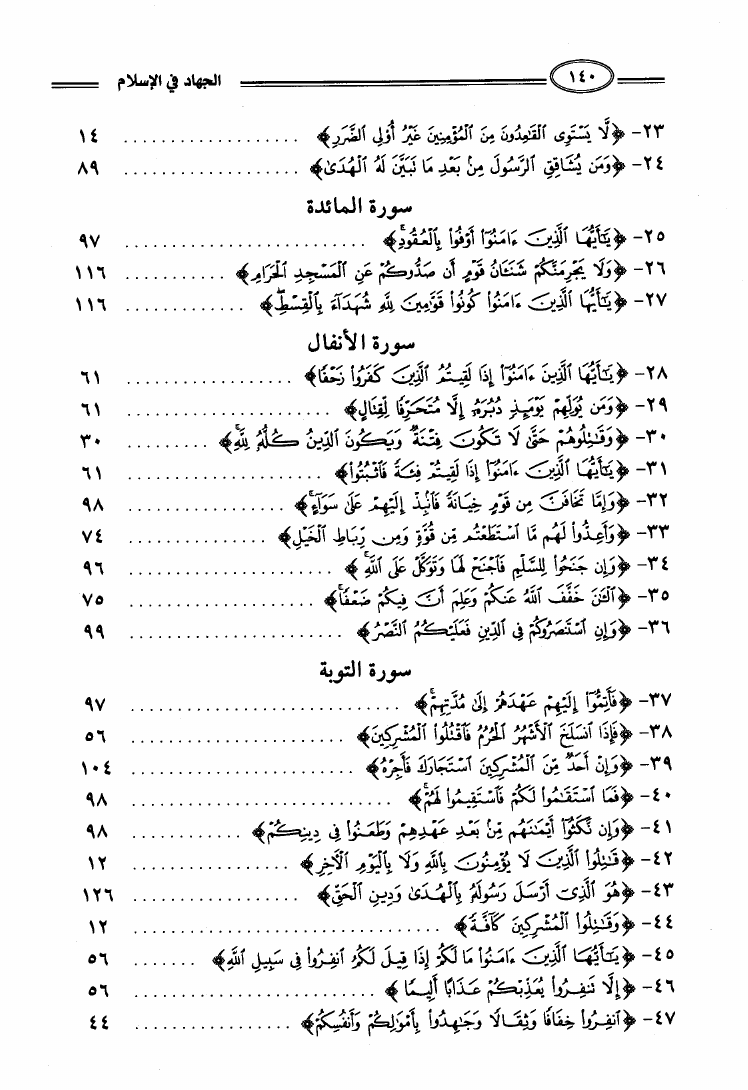 ١٤٠ الجهاد في الإسلام
٢٣- ﴿لَّا يَسْتَوِى الْقَاعِدُونَ مِنَ الْمُؤْمِنِينَ غَيْرُ أُوْلِى الضَّرَرِ﴾ .................. ١٤
٢٤- ﴿وَمَن يُشَاقِقِ الرَّسُولَ مِنۢ بَعْدِ مَا تَبَيَّنَ لَهُ الْهُدَىٰ﴾ .................. ٨٩
سورة المائدة
٢٥- ﴿يَٰٓأَيُّهَا الَّذِينَ ءَامَنُوٓا۟ أَوْفُوا۟ بِالْعُقُودِ﴾ ........................ ٩٧
٢٦- ﴿وَلَا يَجْرِمَنَّكُمْ شَنَـَٔانُ قَوْمٍ أَن صَدُّوكُمْ عَنِ الْمَسْجِدِ الْحَرَامِ﴾ ........... ١١٦
٢٧- ﴿يَٰٓأَيُّهَا الَّذِينَ ءَامَنُوا۟ كُونُوا۟ قَوَّٰمِينَ لِلَّهِ شُهَدَآءَ بِالْقِسْطِ﴾ ............. ١١٦
سورة الأنفال
٢٨- ﴿يَٰٓأَيُّهَا الَّذِينَ ءَامَنُوٓا۟ إِذَا لَقِيتُمُ الَّذِينَ كَفَرُوا۟ زَحْفًا﴾ ................. ٦١
٢٩- ﴿وَمَن يُوَلِّهِمْ يَوْمَئِذٍ دُبُرَهُۥٓ إِلَّا مُتَحَرِّفًا لِّقِتَالٍ﴾ .................... ٦١
٣٠- ﴿وَقَٰتِلُوهُمْ حَتَّىٰ لَا تَكُونَ فِتْنَةٌ وَيَكُونَ الدِّينُ كُلُّهُۥ لِلَّهِ﴾ ......... ٣٠
٣١- ﴿يَٰٓأَيُّهَا الَّذِينَ ءَامَنُوٓا۟ إِذَا لَقِيتُمْ فِئَةً فَاثْبُتُوا۟﴾ ..................... ٦١
٣٢- ﴿وَإِمَّا تَخَافَنَّ مِن قَوْمٍ خِيَانَةً فَانۢبِذْ إِلَيْهِمْ عَلَىٰ سَوَآءٍ﴾ ................. ٩٨
٣٣- ﴿وَأَعِدُّوا۟ لَهُم مَّا اسْتَطَعْتُم مِّن قُوَّةٍ وَمِن رِّبَاطِ الْخَيْلِ﴾ ............... ٧٤
٣٤- ﴿وَإِن جَنَحُوا۟ لِلسَّلْمِ فَاجْنَحْ لَهَا وَتَوَكَّلْ عَلَى اللَّهِ﴾ .................... ٩٦
٣٥- ﴿الْـَٰٔنَ خَفَّفَ اللَّهُ عَنكُمْ وَعَلِمَ أَنَّ فِيكُمْ ضَعْفًا﴾ ................... ٧٥
٣٦- ﴿وَإِنِ اسْتَنصَرُوكُمْ فِى الدِّينِ فَعَلَيْكُمُ النَّصْرُ﴾ ...................... ٩٩
سورة التوبة
٣٧- ﴿فَأَتِمُّوٓا۟ إِلَيْهِمْ عَهْدَهُمْ إِلَىٰ مُدَّتِهِمْ﴾ ........................... ٩٧
٣٨- ﴿فَإِذَا انسَلَخَ الْأَشْهُرُ الْحُرُمُ فَاقْتُلُوا۟ الْمُشْرِكِينَ﴾ ..................... ٥٦
٣٩- ﴿وَإِنْ أَحَدٌ مِّنَ الْمُشْرِكِينَ اسْتَجَارَكَ فَأَجِرْهُ﴾ ...................... ١٠٤
٤٠- ﴿فَمَا اسْتَقَٰمُوا۟ لَكُمْ فَاسْتَقِيمُوا۟ لَهُمْ﴾ .......................... ٩٨
٤١- ﴿وَإِن نَّكَثُوٓا۟ أَيْمَٰنَهُم مِّنۢ بَعْدِ عَهْدِهِمْ وَطَعَنُوا۟ فِى دِينِكُمْ﴾ ........... ٩٨
٤٢- ﴿قَٰتِلُوا۟ الَّذِينَ لَا يُؤْمِنُونَ بِاللَّهِ وَلَا بِالْيَوْمِ الْأَخِرِ﴾ ................ ١٢
٤٣- ﴿هُوَ الَّذِىٓ أَرْسَلَ رَسُولَهُۥ بِالْهُدَىٰ وَدِينِ الْحَقِّ﴾ .................. ١٢٦
٤٤- ﴿وَقَٰتِلُوا۟ الْمُشْرِكِينَ كَآفَّةً﴾ ............................... ١٢
٤٥- ﴿يَٰٓأَيُّهَا الَّذِينَ ءَامَنُوا۟ مَا لَكُمْ إِذَا قِيلَ لَكُمُ انفِرُوا۟ فِى سَبِيلِ اللَّهِ﴾ ....... ٥٦
٤٦- ﴿إِلَّا تَنفِرُوا۟ يُعَذِّبْكُمْ عَذَابًا أَلِيمًا﴾ ......................... ٥٦
٤٧- ﴿انفِرُوا۟ خِفَافًا وَثِقَالًا وَجَٰهِدُوا۟ بِأَمْوَٰلِكُمْ وَأَنفُسِكُمْ﴾ ................ ٤٤